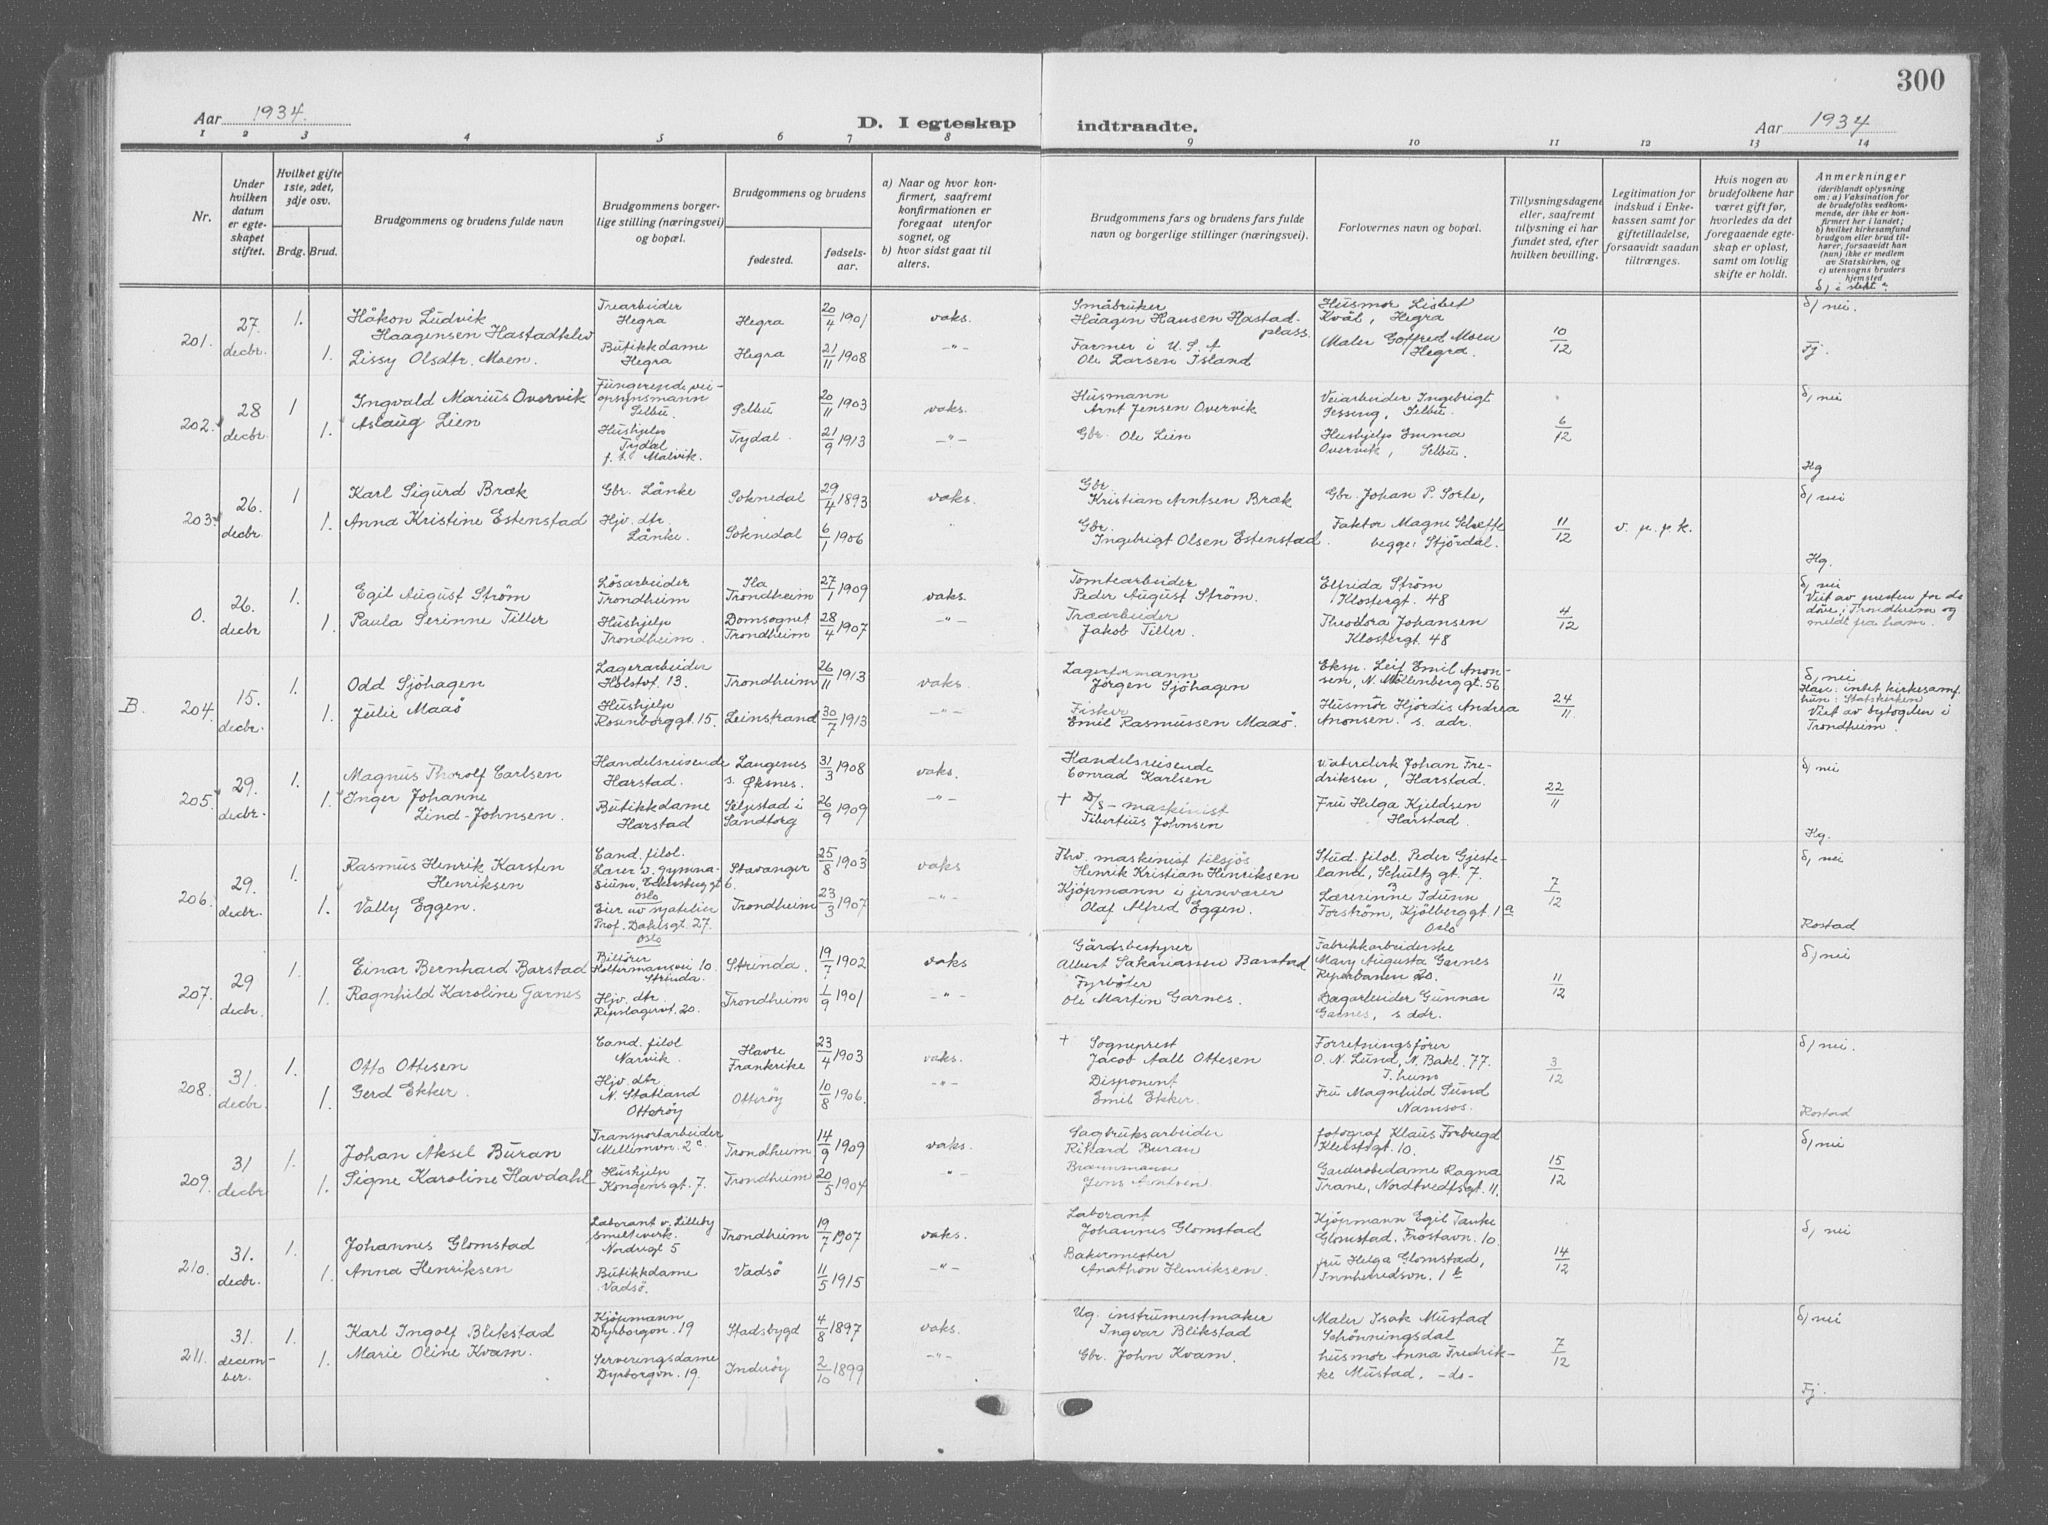 300
Aar 1934. D. I egteskap indtraadte. Aar 1934
1 2 3 4 5 6 7 8 9 10 11 12 13 14
Nr.
Under hvilken datum er egteskapet stiftet.
Hvilket gifte 1ste, 2det, 3dje osv.
Brdg. Brud.
Brudgommens og brudens fulde navn
Brudgommens borgerlige stilling (næringsvei) og bopæl.
Brudgommens og brudens
fødested.
fødselsaar.
a) Naar og hvor konfirmert, saafremt konfirmationen er foregaat utenfor sognet, og
b) hvor sidst gaat til alters.
Brudgommens fars og brudens fars fulde navn og borgerlige stillinger (næringsvei).
Forlovernes navn og bopæl.
Tillysningsdagene eller, saafremt tillysning ei har fundet sted, efter hvilken bevilling.
Legitimation for indskud i Enkekassen samt for giftetilladelse, forsaavidt saadan tiltrænges.
Hvis nogen av brudefolkene har været gift før, hvorledes da det foregaaende egteskap er opløst, samt om lovlig skifte er holdt.
Anmerkninger
(deriblandt oplysning om: a) Vaksination for de brudefolks vedkommende, der ikke er konfirmert her i landet; b) hvilket kirkesamfund brudgom eller brud tilhører, forsaavidt han (hun) ikke er medlem av Statskirken, og c) utensogns bruders hjemsted
d) i slekt?
201. 27. decbr. 1. Håkon Ludvik Haagensen Hastadklev Trearbeider Hegra Hegra 20/4 1901 vaks. Småbruker Håagen Hansen Hastadplass. Husmor Lisbet Kvål, Hegra 10/12 d) nei.
1. Lissy Olsdtr. Moen. Butikkdame Hegra Hegra 21/11 1908 -"- Farmer i U.S.A Ole Larsen Island Maler Gotfred Moen Hegra. Fj.
202. 28 decbr. 1 Ingvald Marius Overvik Fungerende veiopsynsmann Selbu. Selbu 20/11 1903 vaks. Husmann Arnt Jensen Overvik Veiarbeider Ingebrigt Sessing, Selbu. 6/12 d) nei
1. Aslaug Lien Hushjelp Tydal f. t. Malvik. Tydal. 21/9 1913 -"- Gbr. Ole Lien Hushjelp Emma Overvik, Selbu. Hg
203. 26. decbr. 1 Karl Sigurd Bræk Gbr. Lånke Soknedal 29/4 1893 vaks. Gbr. Kristian Arntsen Bræk Gbr. Johan P. Sorte, 11/12 v. p. p. k. d) nei
1. Anna Kristine Estenstad Hjv. dtr. Lånke. Soknedal 6/1 1906 " Gbr. Ingebrigt Olsen Estenstad. Faktor Magne Schefte begge: Stjørdal. Hg.
0. 26. decbr 1. Egil August Strøm Løsarbeider Trondheim Ila Trondheim 27/1 1909 vaks. Tomtearbeider Peder August Strøm. Elfrida Strøm Klostergt. 48 4/12 d) nei Viet av presten for de døve i Trondheim og meldt fra ham.
1 Paula Serinne Tiller Hushjelp Trondheim. Domsognet Trondheim 28/4 1907 -"- Træarbeider Jakob Tiller. Theodora Johansen Klostergt. 48
B. 204. 15. decbr. 1. Odd Sjøhagen Lagerarbeider Holstvt. 13. Trondheim 26/11 1913 vaks. Lagerformann Jørgen Sjøhagen Eksp. Leif Emil Anonsen, N. Møllenberggt. 56 24/11 d) nei Han: intet kirkesamf. hun: Statskirken Viet av byfogden i Trondheim
1. Julie Maaø Hushjelp Rosenborggt. 15. Leinstrand 30/7 1913 -"- Fisker Emil Rasmussen Maaø. Husmor Hjørdis Andrea Anonsen. s. adr.
205. 29. decbr. 1. Magnus Thorolf Carlsen Handelsreisende Harstad. Langenes s. Øksnes. 31/3 1908 vaks. Handelsreisende Conrad Karlsen Johan Fredriksen, Harstad. 22/11 d) nei
1. Inger Johanne Lind-Johnsen. Butikkdame Harstad Seljestad i Sandtorg 26/9 1909 -"- + D/S-maskinist Tibertius Johnsen Fru Helga Kjeldsen Harstad. Hg.
206. 29. decbr. 1. Rasmus Henrik Karsten Henriksen Cand. filol. Lærer v. gymnasium, gt 6. Oslo Stavanger 25/8 1903 vaks Fhv. maskinist tilsjøs Henrik Kristian Henriksen Stud. filol. Peder Gjesteland, Schultz gt. 7. 7/12 d) nei
1. Vally Eggen. Eier av syatelier Prof. Dahlsgt. 27. Oslo Trondheim 23/3 1907 -"- Kjøpmann i jernvarer Olaf Alfred Eggen. Lærerinne Idunn Torstrøm, Kjølberggt. 1 a Oslo Rostad
207. 29 decbr. 1. Einar Bernhard Barstad Bilfører Koltermansvei 10. Strinda. Strinda. 19/7 1902 vaks Gårdsbestyrer Albert Sakariassen Barstad Fabrikkarbeiderske Mary Augusta Garnes Reperbanen 20. 11/12 d) nei
1. Ragnhild Karoline Garnes Hjv. dtr. Repslagervt. 20. Trondheim 1/9 1901 -"- Fyrbøter Ole Martin Garnes. Dagarbeider Gunnar Garnes, s adr.
208. 31. decbr. 1. Otto Ottesen Cand. filol Narvik. Havre Frankrike 23/4 1903 vaks. + Sogneprest Jacob Aall Ottesen Forretningsfører O. N. Lund, N. Bakl. 77. T.heim 3/12 d) nei.
1. Gerd Ekker. Hjv. dtr. N. Statland Otterøy Otterøy 10/8 1906. -"- Disponent Emil Ekker. Fru Magnhild Sund Namsos. Rostad
209. 31 decbr 1. Johan Aksel Buran Transportarbeider Mellemvn. 2 c Trondheim 14/9 1909 vaks. Sagbruksarbeider Rikard Buran fotograf Klaus Forbregd gt. 10. 15/12 d) nei
1. Signe Karoline Havdahl Hushjelp Kongensgt. 7. Trondheim 20/5 1904 -"- Brannmann Jens Arntsen. Garderobedame Ragna Trane, Nordtvedtsgt. 11.
210. 31. decbr. 1. Johannes Glomstad Laborant v. Lilleby smelteverk. Nordregt 5 Trondheim 19/7 1907 vaks. Laborant Johannes Glomstad Kjøpmann Egil Tanke Glomstad. Frostavn. 10. 14/12 d) nei
1. Anna Henriksen Butikkdame Vadsø. Vadsø 11/5 1915 -"- Bakermester Anathon Henriksen. fru Helga Glomstad, Innherredsvn. 1 b
211. 31. december. 1. Karl Ingolf Blikstad Kjøpmann Dyrborgvn. 19 Stadsbygd 4/8 1897 vaks. Ug. instrumentmaker Ingvar Blikstad Maler Isak Mustad Schønningsdal 7/12 d) nei
1. Marie Oline Kvam. Serveringsdame Dyrborgvn. 19. Inderøy 2/10 1899 -"- Gbr. John Kvam. husmor Anna Fredrikke Mustad. -do- Fj.